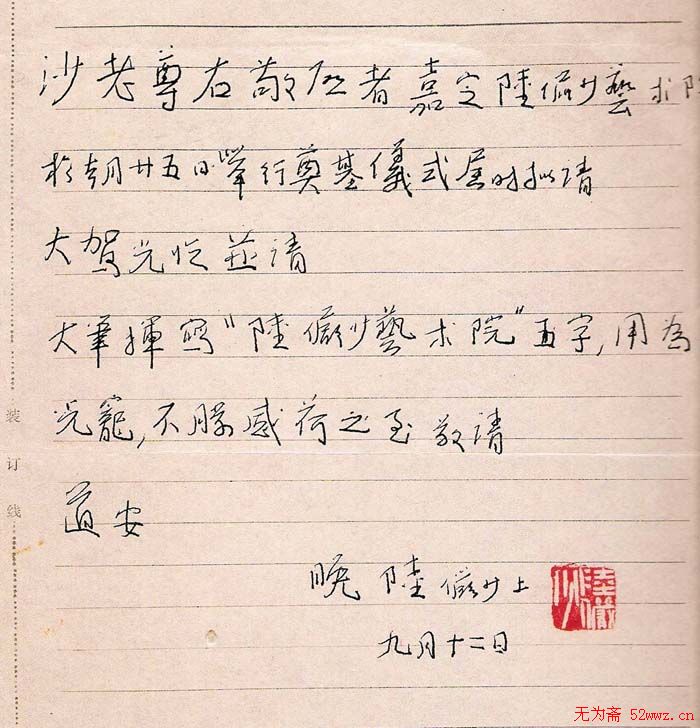 沙老尊右敬启者嘉定陸儼少藝术院
於本月廿五日舉行奠基儀式届时拟请
大驾光临并请
大筆揮寫“陸儼少藝术院”五字,用為
光寵,不勝感荷之至敬请
道安
晚陸儼少上
九月十二日
陸儼少
装订线
无为斋 52wwz.cn